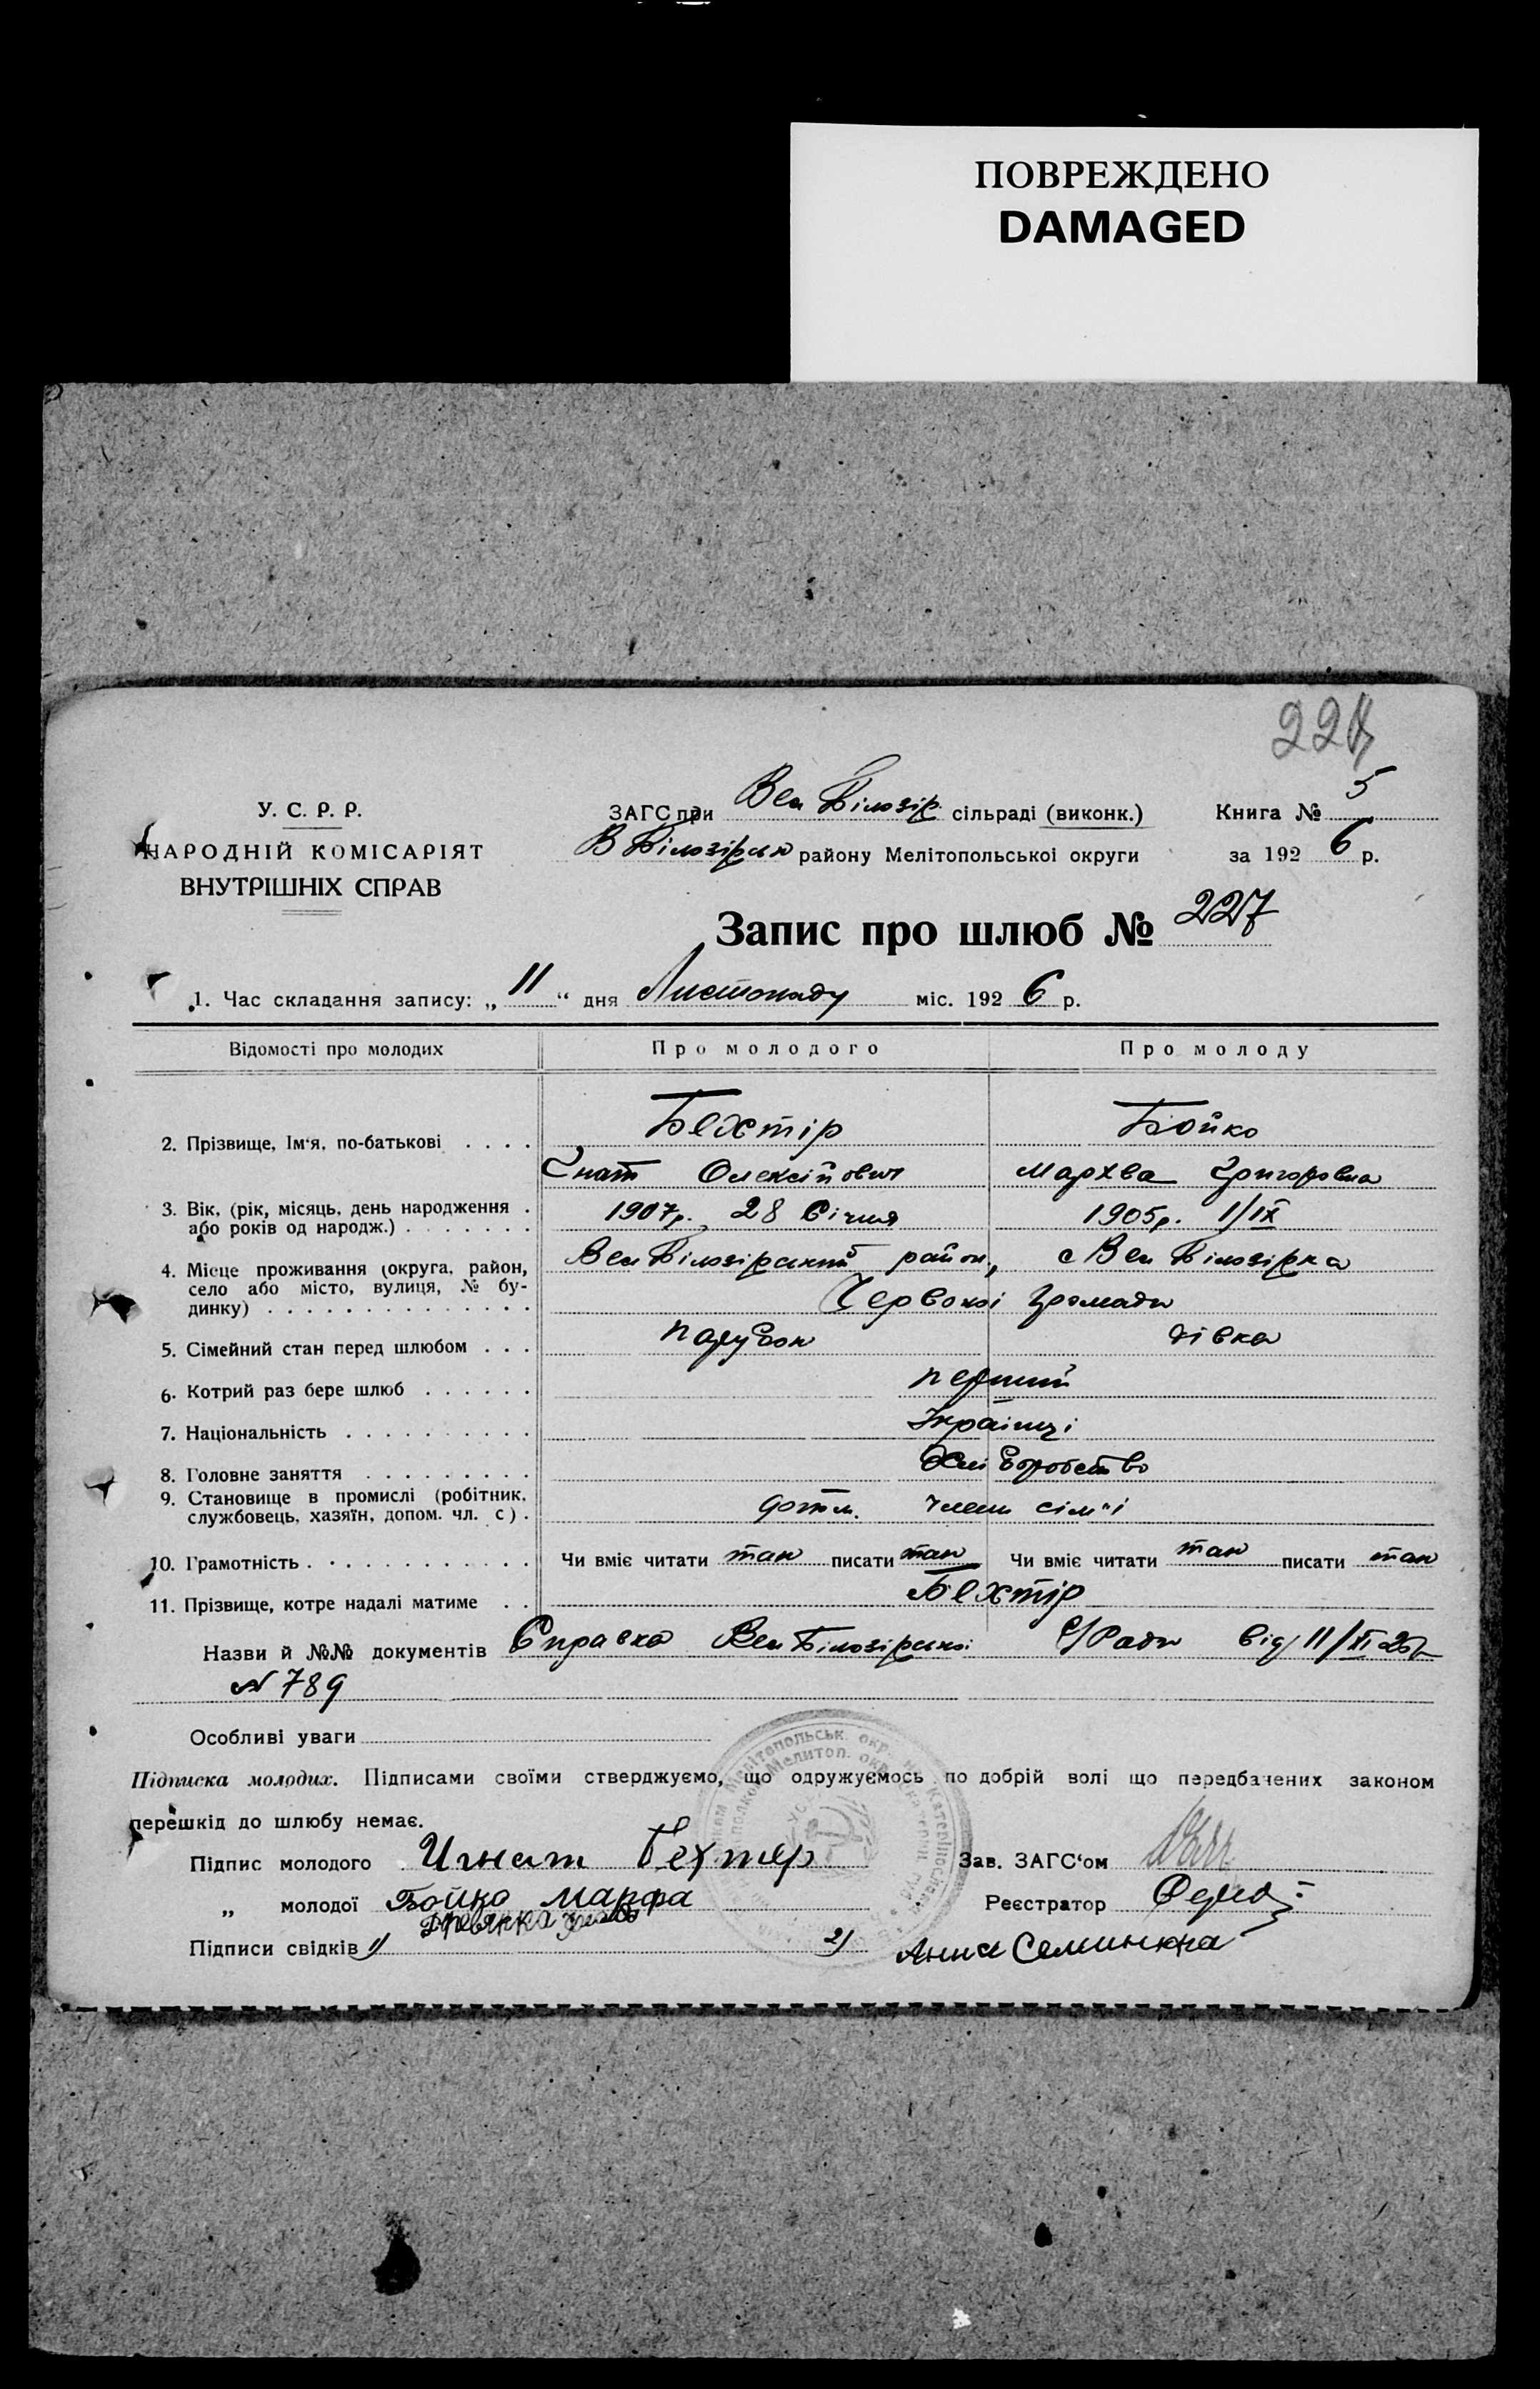 ПОВРЕЖДЕНО
DAMAGED
227
У. С. Р. Р.
НАРОДНІЙ КОМІСАРІЯТ
ВНУТРІШНІХ СПРАВ
ЗАГС при Вел Білозір. сільраді (виконк.)
В Білозірськ району Мелітопольської округи
Книга № 5
за 192 6 р.
Запис про шлюб № 227
1. Час складання запису: „ 11 “ дня Листопаду міс. 192 6 р.
Відомості про молодих Про молодого Про молоду
2. Прізвище, Ім‘я, по-батькові . . . . Бехтір Бойко
Гнат Олексійович Мархва Григоровна
3. Вік, (рік, місяць, день народження . 1907р. 28 Січня 1905р. 1/IX
або років од народж.) . . . . . . .
4. Місце проживання (округа, район, Вел Білозірський район, с Вел Білозірка
село або місто, вулиця, № бу-
динку) . . . . . . . . . . . . . . Червоної Громади
5. Сімейний стан перед шлюбом . . . парубок дівка
6. Котрий раз бере шлюб . . . . . . перший
7. Національність . . . . . . . . . . Українці
8. Головне заняття . . . . . . . . . Хліборобство
9. Становище в промислі (робітник,
службовець, хазяїн, допом. чл. с) . члени сім"ї
10. Грамотність . . . . . . . . . . . Чи вміє читати так писати так Чи вміє читати так писати так
11. Прізвище, котре надалі матиме . . Бехтір
Назви й №№ документів Справка Вел Білозірської С/Ради від 11/XI 26р
N 789
Особливі уваги
Підписка молодих. Підписами своїми стверджуємо, що одружуємось по добрій волі що передбачених законом
перешкід до шлюбу немає.
Підпис молодого Игнат Бехтер Зав. ЗАГС‘ом
„ молодої Бойко Марфа Реєстратор
Підписи свідків 1) 2) Анна Семинкна